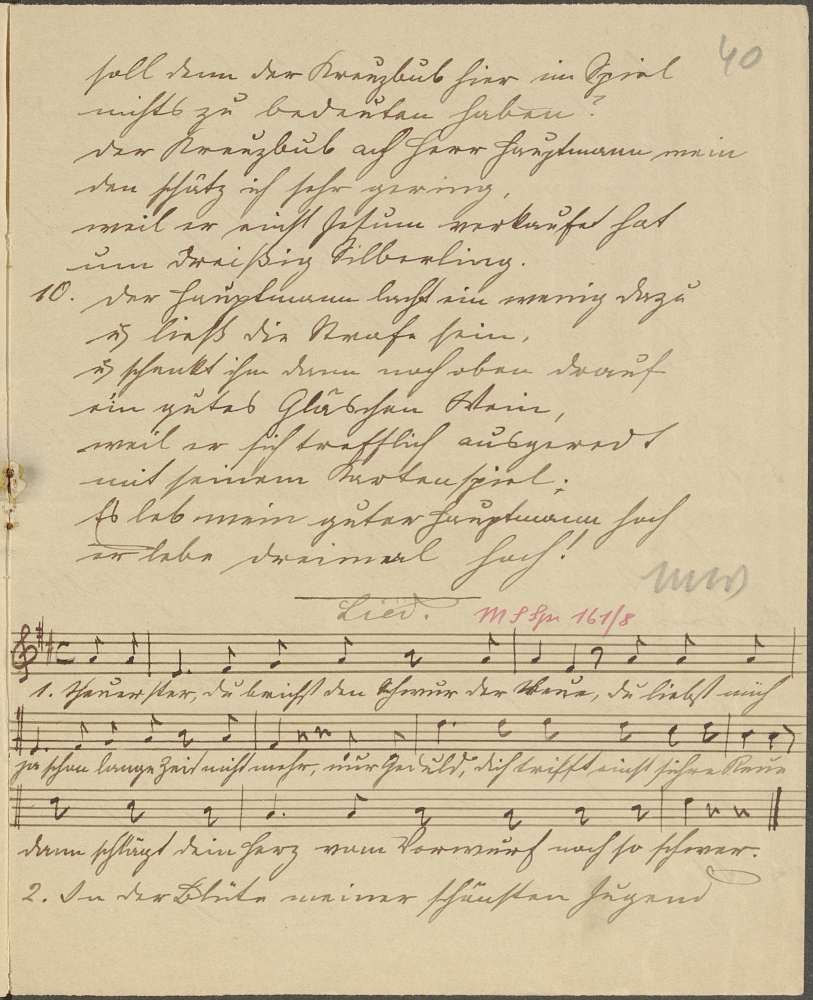 40
soll denn der Kreuzbub hier im Spiel
nichts zu bedeuten haben?
der Kreuzbub ach Herr Hauptmann mein
den schätz ich sehr gering,
weil er einst Jesum verkauft hat
um dreißig Silberling.
10. der Hauptmann lacht ein wenig dazu
u ließ die Strafe sein,
u schenkt ihm dann noch oben drauf
ein gutes Gläschen Wein,
weil er sich trefflich ausgeredt
mit seinem Kartenspiel;
Es leb mein guter Hauptmann hoch
er lebe dreimal hoch!
Lied.
1. Theuerster, du brichst den Schwur der Treue, du liebst mich
ja schon lange Zeit nicht mehr, nur Geduld, dich trifft einst sichre Reue
dann schlägt dein Herz vom Vorwurf noch so schwer.
2. In der Blüte meiner schönsten Jugend